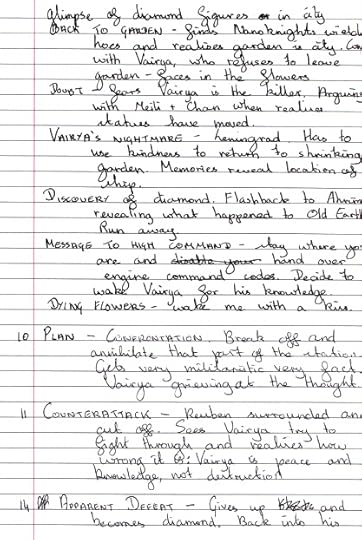 glimpse of diamond figures or in city
BACK TO GARDEN - finds Nanoknights wield
hoes and realises garden is city. Con
with Vairya, who refuses to leave
garden - faces in the flowers
DOUBT - fears Vairya is the killer. Arguing
with Meili + Chan when realises
statues have moved.
VAIRYA'S NIGHTMARE - Leningrad. Has to
use kindness to return to shrinking
garden. Memories reveal location of
ship.
DISCOVERY of diamond. Flashback to
revealing what happened to Old Earth
Run away
MESSAGE TO HIGH COMMAND - stay where you
are and disable your hand over
engine command codes. Decide to
wake Vairya for his knowledge.
DYING FLOWERS - wake me with a kiss.
10 PLAN - CONFRONTATION. Break off and
annihilate that part of the station.
Gets very militaristic very fast.
Vairya grieving at the thought.
11 COUNTERATTACK - Reuben surrounded and
cut off. Sees Vairya try to
fight through and realises how
wrong it is: Vairya is peace and
knowledge, not destruction
14 APPARENT DEFEAT - Gives up and
becomes diamond. Back into his